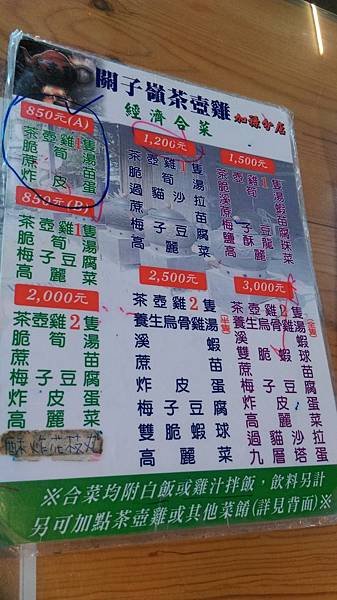 關子嶺茶壺雞
經濟合菜
850元(A)
茶壺雞1隻
脆筍湯
蔗苗
炸皮蛋
850元(B)
茶壺雞1隻
脆筍湯
梅子豆腐
高麗菜
1,200元
茶壺雞1隻
脆筍湯
過貓沙拉
蔗苗
梅子豆腐
高麗菜
1,500元
茶壺雞1隻
脆筍湯
溪蝦
蔗苗
梅子豆腐
鹽酥龍珠
高麗菜
2,000元
茶壺雞2隻
脆筍湯
蔗苗
梅子豆腐
炸皮蛋
高麗菜
酥炸花枝丸
2,500元
茶壺雞2隻
養生烏骨雞湯(半隻)
溪蝦
蔗苗
炸皮蛋
梅子豆腐
雙脆蝦球
高麗菜
3,000元
茶壺雞2隻
養生烏骨雞湯(全隻)
溪蝦
雙脆蝦球
蔗苗
梅子豆腐
炸皮蛋
高麗菜
過貓沙拉
九層塔蛋
※合菜均附白飯或雞汁拌飯，飲料另計
另可加點茶壺雞或其他菜餚(詳見背面)※